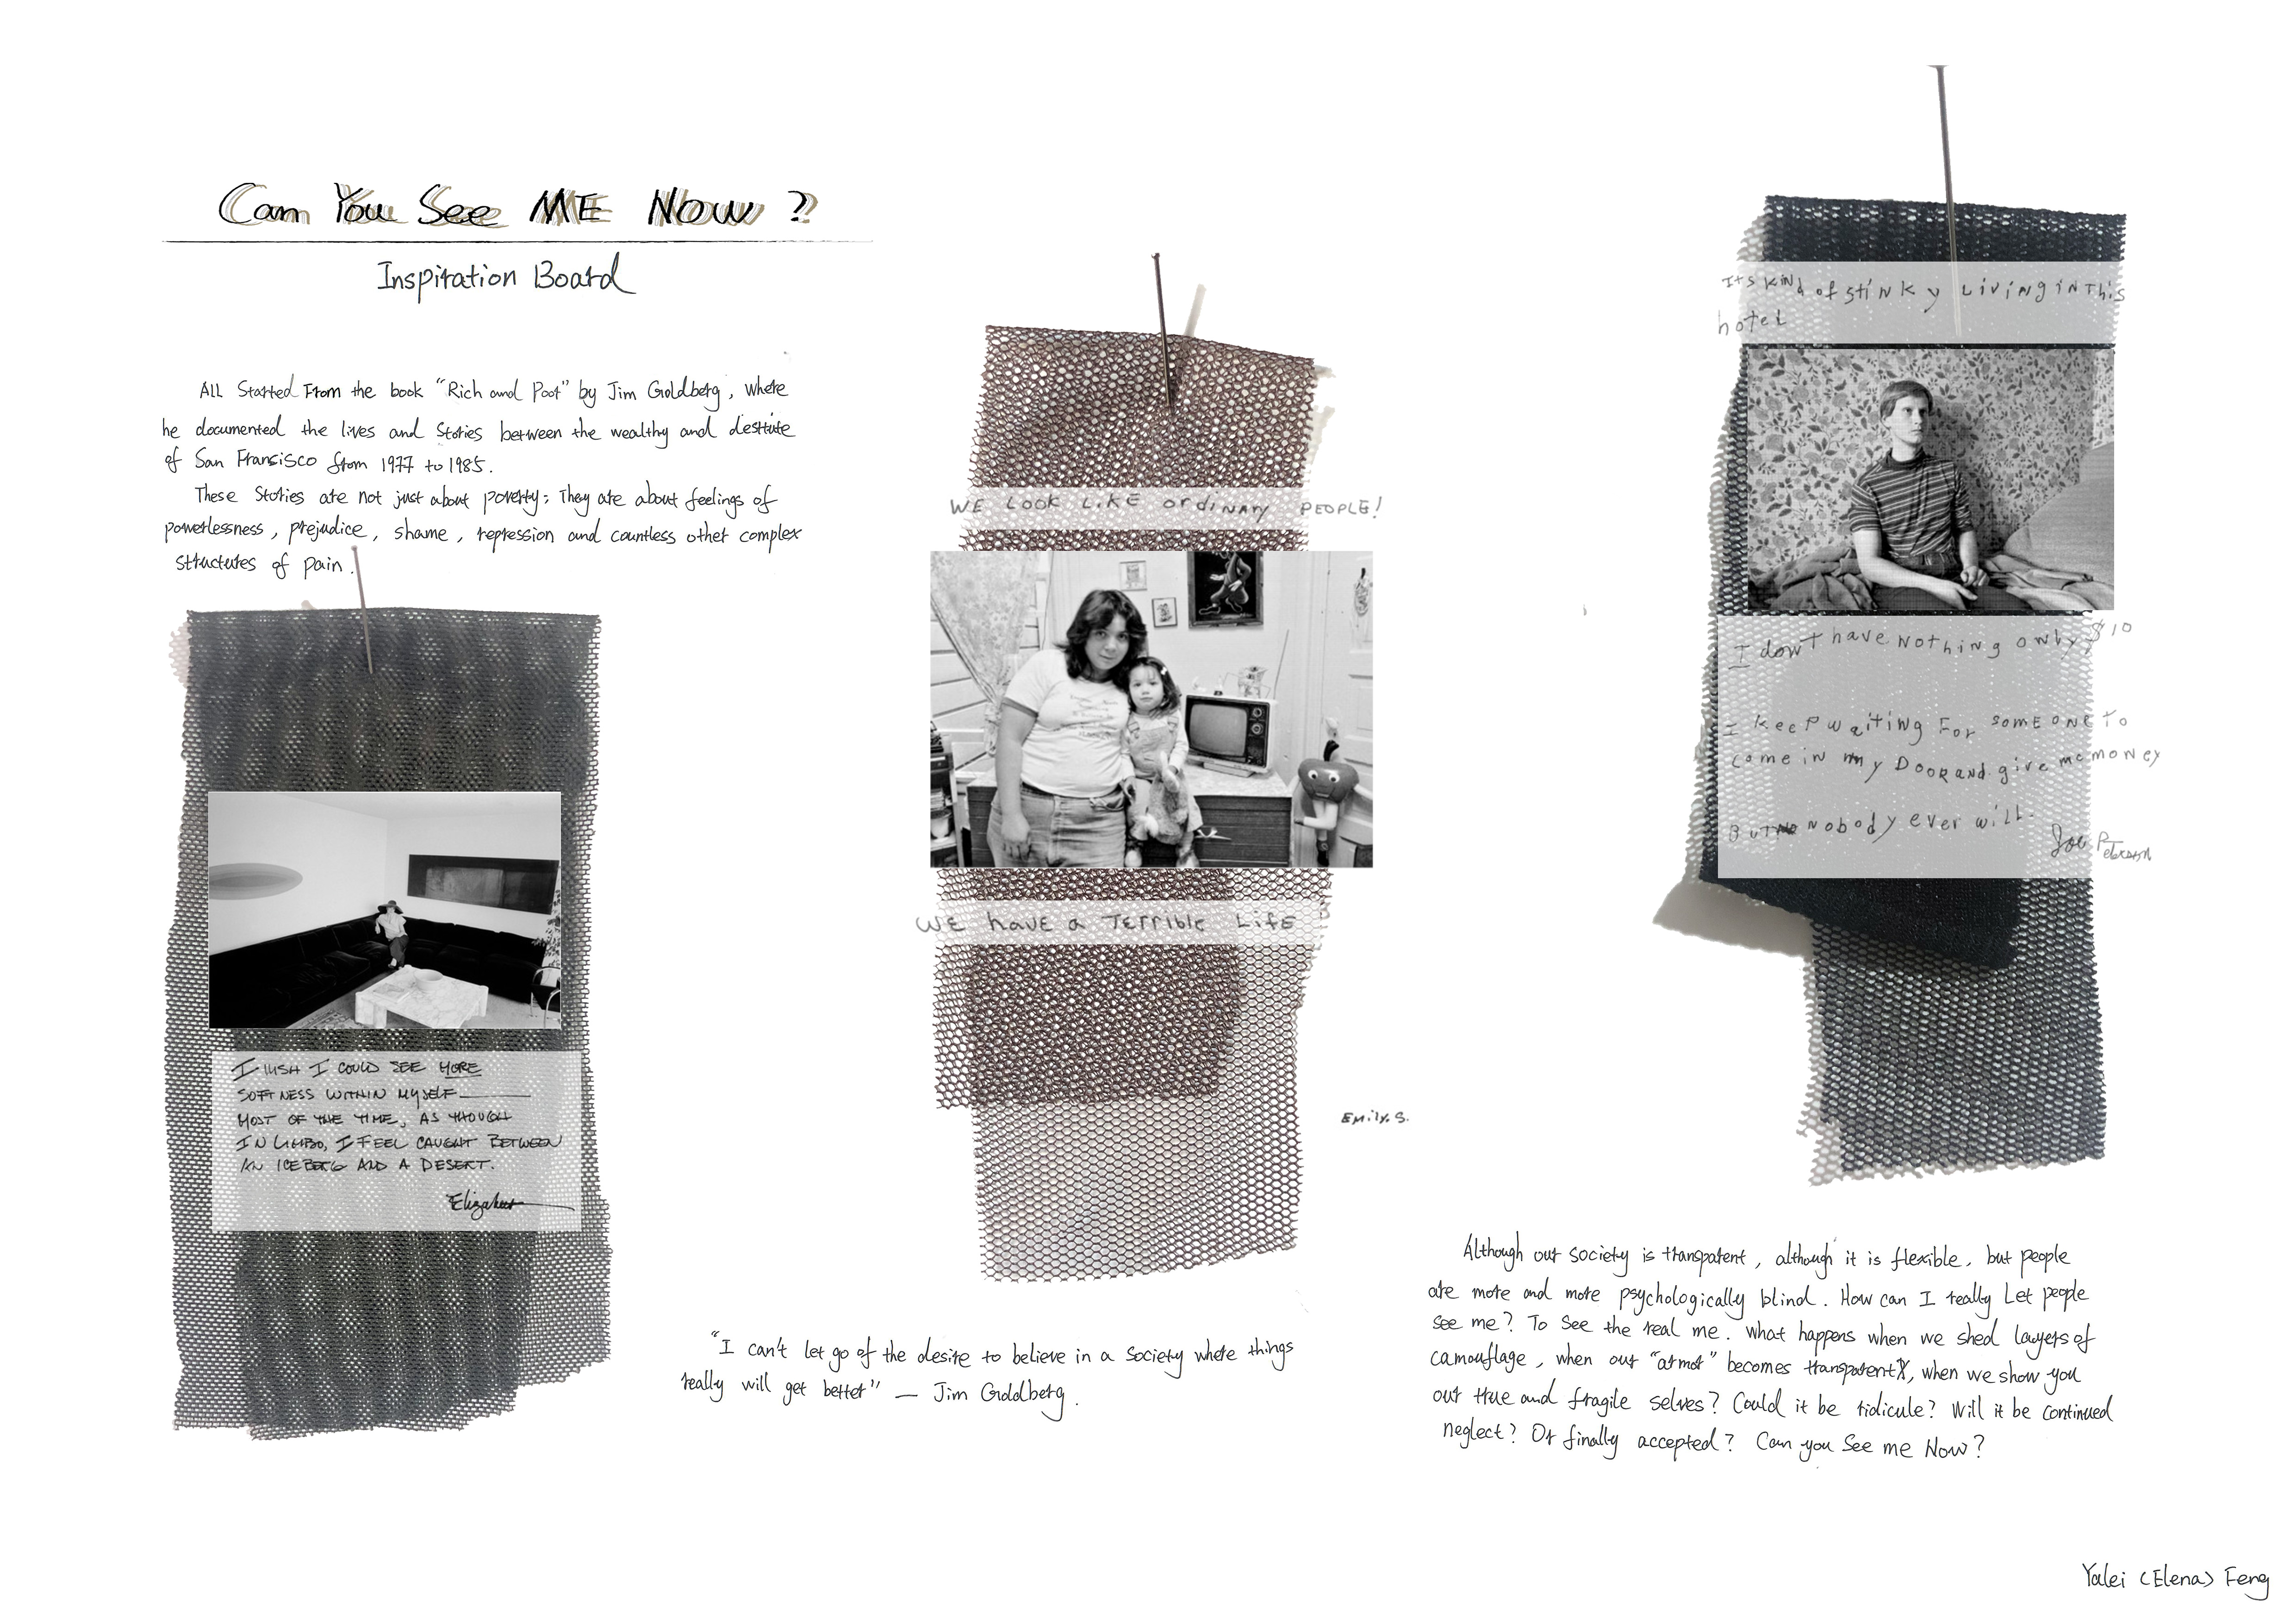 Can You See ME Now ?
Inspiration Board
ALL Started From the book "Rich and Poor" by Jim Goldberg, where
he documented the lives and Stories between the wealthy and destitute
of San Fransisco from 1977 to 1985.
These Stories are not just about poverty; They are about feelings of
powerlessness, prejudice, shame, repression and countless other complex
structures of pain.
I WISH I COULD SEE MORE
SOFTNESS WITHIN MYSELF
MOST OF THE TIME, AS THOUGH
IN LIMBO, I FEEL CAUGHT BETWEEN
AN ICEBERG AND A DESERT.
Elizabeth
WE LOOK LIKE ORDINARY PEOPLE!
WE HAVE A TERRIBLE LIFE
Emily. S.
"I can't let go of the desire to believe in a society where things
really will get better" — Jim Goldberg.
ITS KiNd of STiNKy LiViNg iN This
hotel
I don't have Nothing only $10
I Keep waiting For SomEoNe To
come in my Door and give me money
But Nobody ever will.
Joe Peterson
Although our society is transparent, although it is flexible, but people
are more and more psychologically blind. How can I really Let people
see me? To See the real me. What happens when we shed layers of
camouflage, when our "armor" becomes transparent, when we show you
our true and fragile selves? Could it be ridicule? Will it be continued
neglect? Or finally accepted? Can you See me Now?
Yalei (Elena) Feng